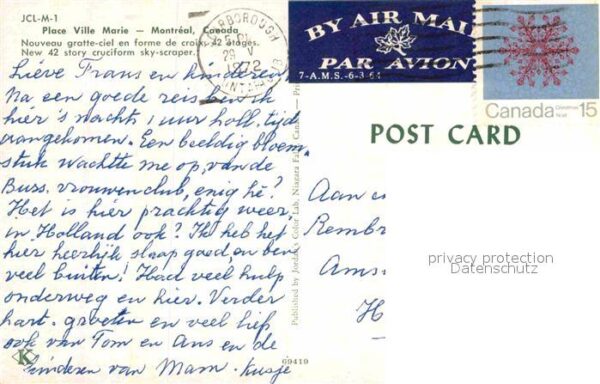 JCL-M-1
Place Ville Marie — Montréal, Canada
Nouveau gratte-ciel en forme de croix, 42 étages.
New 42 story cruciform sky-scraper.
SCARBOROUGH
PM
29
V
1972
ONTARIO
BY AIR MAIL
PAR AVION
7-A.M.S.-6-3-64
Canada Christmas Noël 15
POST CARD
Lieve Frans en kinderen,
Na een goede reis ben ik
hier 's nachts 1 uur holl. tijd
aangekomen. Een beeldig bloem
stuk wachtte me op, van de
Buss. vrouwenclub, enig hè?
Het is hier prachtig weer,
in Holland ook? Ik heb het
hier heerlijk slaap goed, en ben
veel buiten! Had veel hulp
onderweg en hier. Verder
hart. groeten en veel liefs
ook van Tom en Ans en de
kinderen van Mam. kusje
Aan
Rembr
Ams
H
Published by Jordan's Color Lab, Niagara Falls, Canada
K
69419
privacy protection
Datenschutz